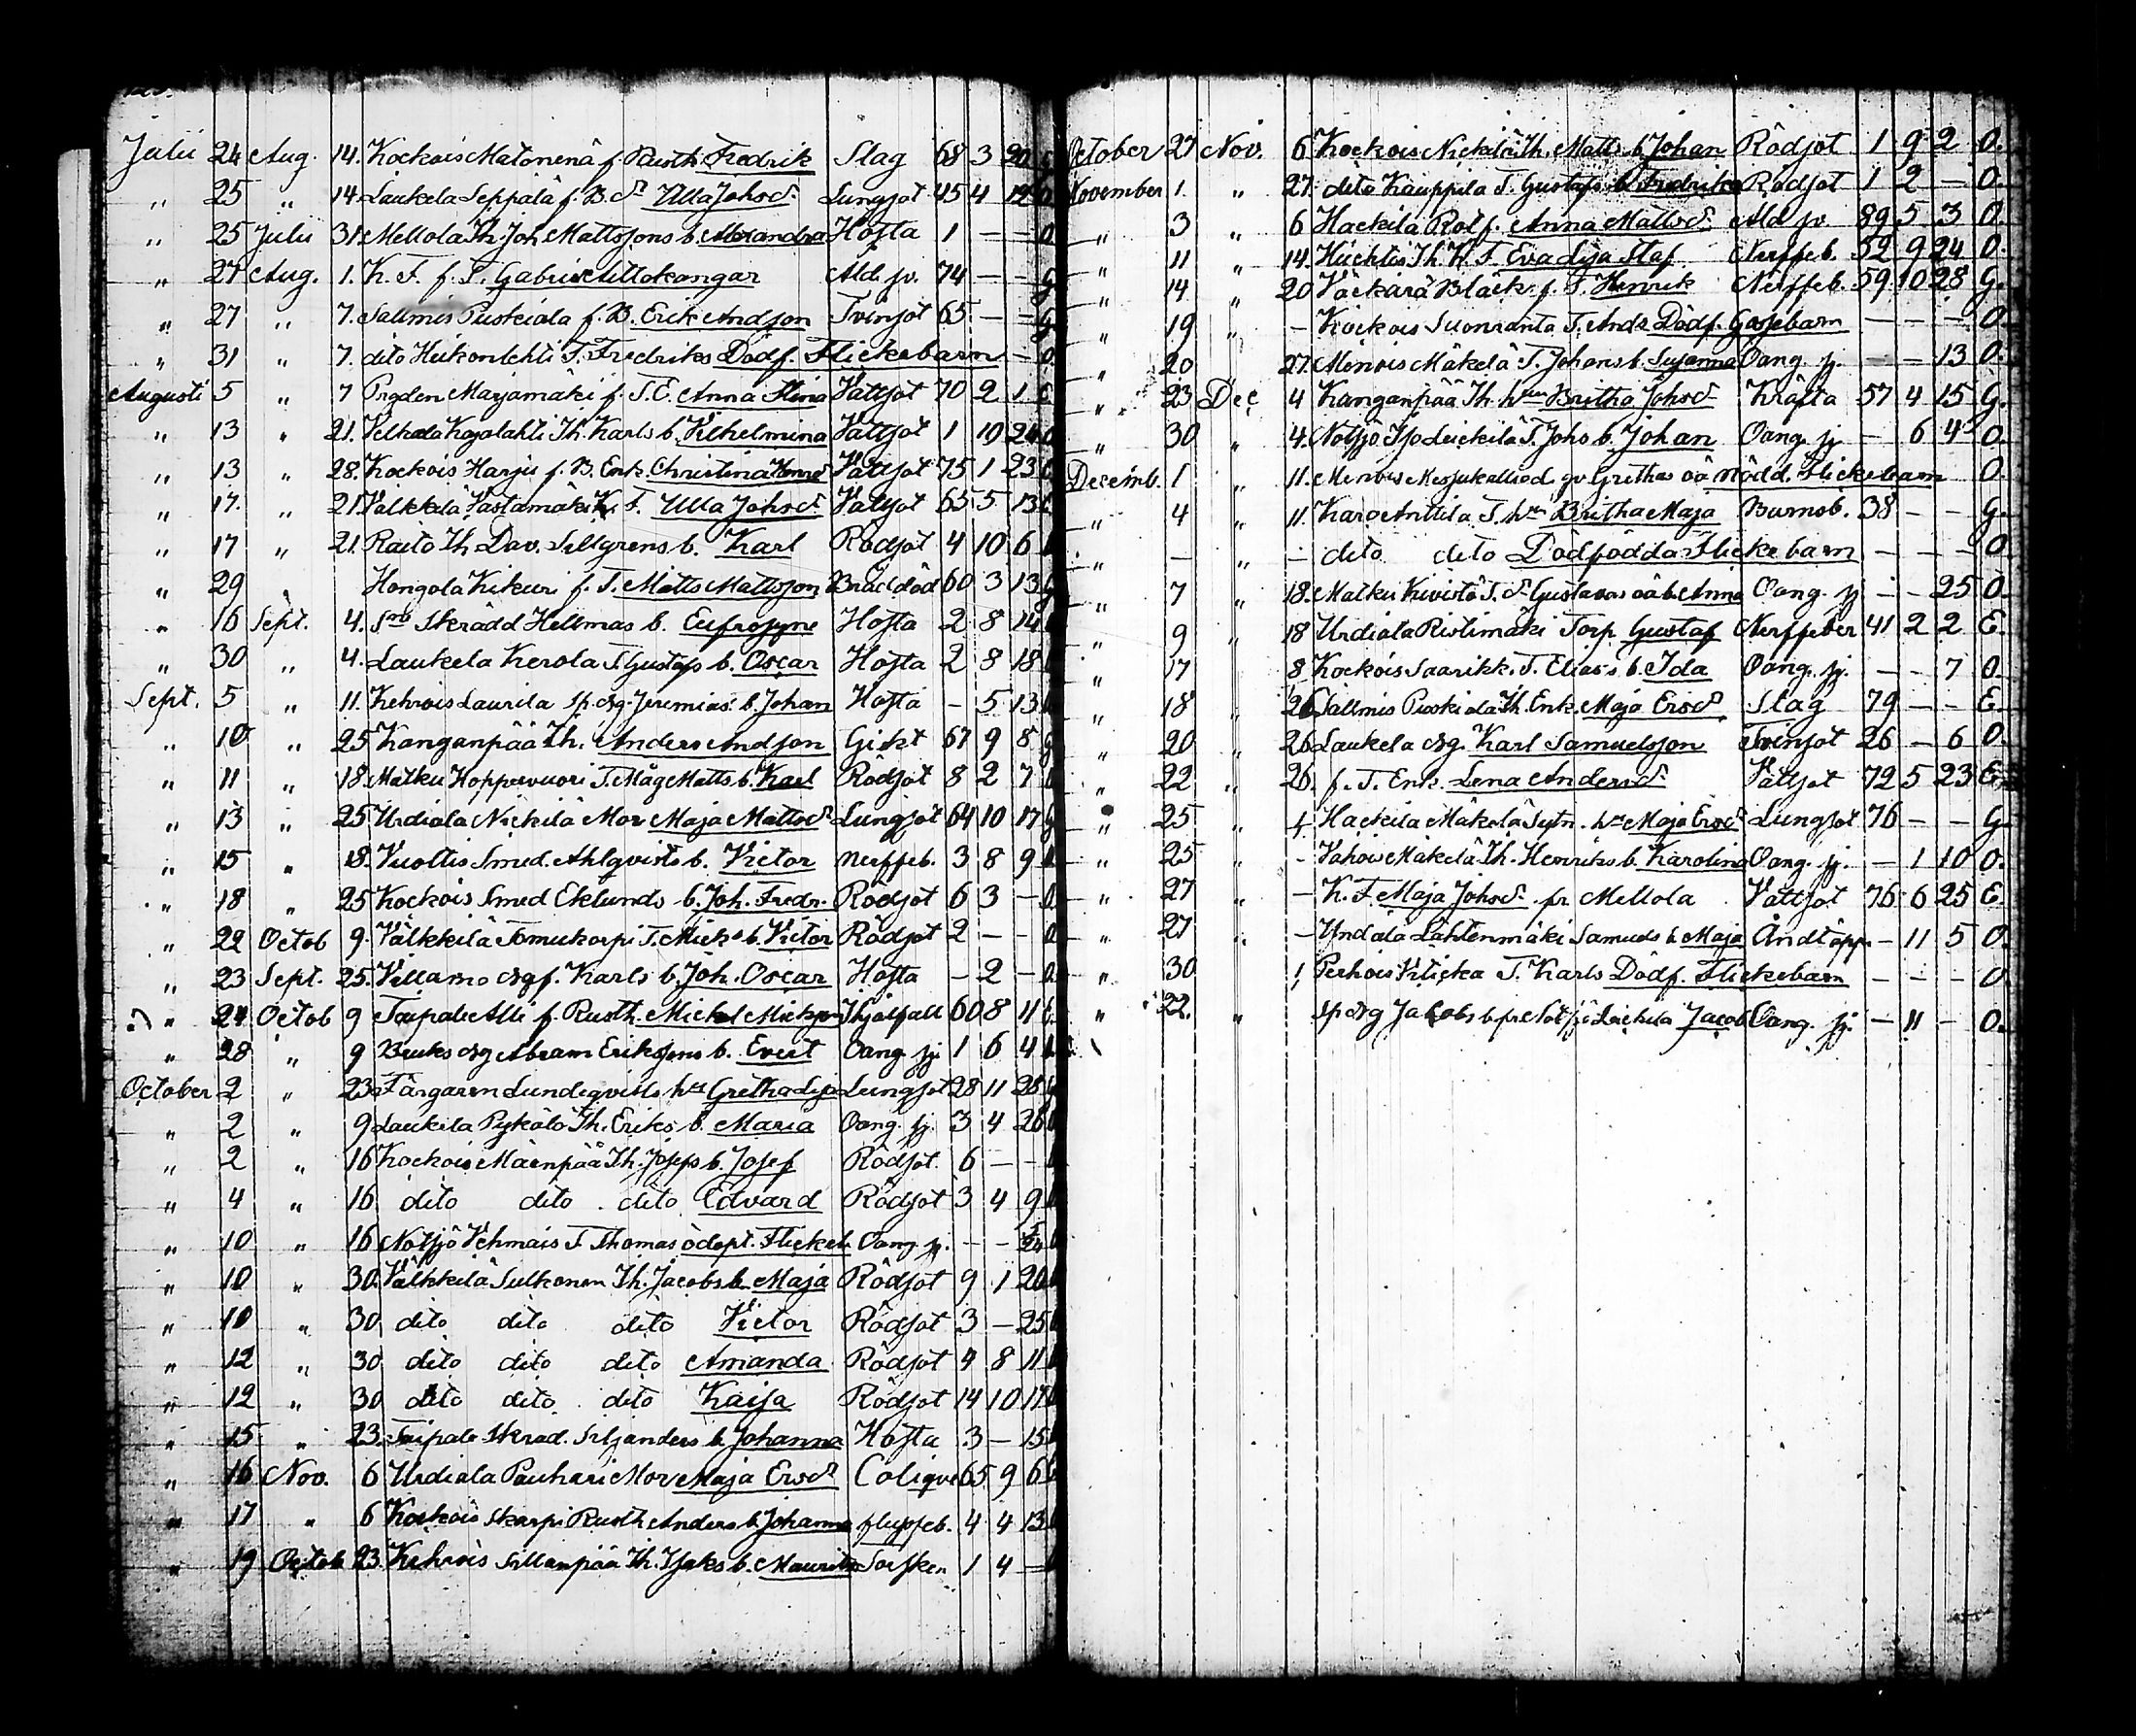 Julii 24 Aug. 14. Kockois Matonenä f. Rusth. Fredrik Slag 68 3 20
„ 25 „ 14 Laukela Seppälä f. B. d:r Ulla Johsd:r Lungsot 45 4 12 O
„ 25 Julii 31. Mellola Th. Joh. Mattssons b. Alexandra Hosta 1 — — O
„ 27 Aug. 1. K. F. f. S. Gabriel Ald. sv. 74 — — G
„ 27 „ 7. Sallmis Puskiala f. B. Erik Andson Tvinsot 65 — — G
„ 31 „ 7. dito Heikonlehti T. Fredriks Dödf. Flickebarn — O
Augusti 5 „ 7 Prgden Marjamäki f. T. E. Anna Stina Vattsot 70 2 1 E
„ 13 „ 21. Kojolahti Th. Karls b. Vilhelmina Vattsot 1 10 24 O
„ 13 „ 28. Kockois Harju f. B. Enk. Christina Vattsot 75 1 23
„ 17. „ 21. Välkkilä Vastamäki K. F. Ulla Johsd:r Vattsot 65 5 13
„ 17 „ 21. Raito Th. Dav. Sellgrens b. Karl Rödsot 4 10 6
„ 29 „ Hongola Kikuri f. T. Matts Mattsson Bråddöd 60 3 13 G
„ 16 Sept. 4. Skrädd Hellmas b. Eufrosyne Hosta 2 8 14
„ 30 „ 4. Laukela Kerola T. Gustafs b. Oscar Hosta 2 8 18
Sept. 5 „ 11. Kehrois Laurila sp. dg. Jeremias b. Johan Hosta — 5 13
„ 10 „ 25 Kanganpää Th. Anders Andson Gickt 67 9 8 G
„ 11 „ 18. Matku Hoppervuori T. Måg Matts b. Karl Rödsot 8 2 7
„ 13 „ 25 Urdiala Nickilä Mor Maja Mattsd:r Lungsot 64 10 17 G
„ 15 „ 18. Vuoltis Smed. Ahlqvists b. Victor Nerffeb. 3 8 9
„ 18 „ 25 Kockois Smed Eklunds b. Joh. Fredr. Rödsot 6 3 — O.
„ 22 Octob 9. Välkkilä Tomukorpi T. Micks b. Victor Rödsot 2 — — O
„ 23 Sept. 25. Vellamo dgf. Karls b. Joh. Oscar Hosta — 2 — O.
„ 24 Octob 9 Taipale Alli f. Rusth. Michel Ihjälfall 60 8 11
„ 28 „ 9 Bruks dg Abram Erikssons b. Evert Oang. sj. 1 6 4
October 2 „ 23. Färgaren Lundeqvists h:u Gretha Lisa Lungsot 28 11 28
„ 2 „ 9 Laukela Pykälä Th. Eriks b. Maria Oang. sj. 3 4 26
„ 2 „ 16 Kockois Mäenpää Th. Josefs b. Josef Rödsot. 6 — —
„ 4 „ 16 dito dito dito Edvard Rödsot 3 4 9
„ 10 „ 16 Notsjö Vehmais T Thomas odöpt. Flickeb. Oang. sj. — —
„ 10 „ 30. Välkkilä Sulkonen Th. Jacobs b. Maja Rödsot 9 1 20
„ 10 „ 30 dito dito dito Victor Rödsot 3 — 25
„ 12 „ 30 dito dito dito Amanda Rödsot 4 8 11
„ 12 „ 30 dito dito dito Kaisa Rödsot 14 10 17
„ 15 „ 23. Taipale Skräd. Siljanders b. Johanna Hosta 3 — 15
„ 16 Nov. 6 Urdiala Pauhari Mor Maja Ersd:r Colique 65 9 6
„ 17 „ 6 Kockois Skarpi Rusth Anders b. Johanna 4 4 13
„ 19 Octob 23. Kehrois Sillanpää Th. Isaks b. Mauritz 1 4 —
October 27 Nov. 6 Kockois Nickilä Th. Matts b. Johan Rödsot 1 9 2 O.
November 1. „ 27. dito Kauppila T. Gustafs b. Fredrika Rödsot 1 2 — O.
„ 3 „ 6 Hackila Rotf. Anna Mattsd:r Ald. sv. 89 5 3 O.
„ 11 „ 14. Huchtis Th. K. F. Eva Lisa Staf Nerffeb. 52 9 24 O.
„ 14 „ 20 Väckärä Bläck. f. T. Henrik Nerffeb. 59 10 28 G.
„ 19 „ — Kockois Suonranta T. Ands Dödf. Gossebarn — — — O.
„ 20 „ 27. Menois Mäkelä T. Johans b. Susanna Oang. sj. — — 13 O.
„ 23 Dec 4 Kanganpää Th. h:un Britha Johsd:r Kräfta 57 4 15 G.
„ 30 „ 4. Notsjö Iso Luickilä T. Johs b. Johan Oang. sj. — 6 4 O.
Decemb. 1 „ 11. Menois qv. Grethas oä nödd. Flickebarn O.
„ 4 „ 11. Karo Anttila T. h:un Britha Maja Barnsb. 38 — — G.
„ — „ — dito dito Dödfödda Flickebarn — — — O.
„ 7 „ 18. Matku Kivistö T. d:r Gustavas oäb. Anna Oang. sj — — 25 O.
„ 9 „ 18 Urdiala Ristimäki Torp Gustaf Nerffeber 41 2 2 E.
„ 17 „ 8 Kockois Saarikk. T. Elias's b. Ida Oang. sj. — — 7 O.
„ 18 „ 26 Sallmis Puskiala Th. Enk. Maja Ersd:r Slag 79 — — E.
„ 20 „ 26. Laukela dg. Karl Samuelsson Tvinsot 26 — 6 O.
„ 22 „ 26. f. T. Enk. Lena Andersd:r Vattsot 72 5 23 E.
„ 25 „ 1. Hackila Mäkelä Sytn. h:u Maja Ersd:r Lungsot 76 — — G.
„ 25 „ — Vahois Mäkelä Th. Henriks b. Karolina Oang. sj. — 1 10 O.
„ 27 „ — K. F. Maja Johsd:r fr. Mellola Vattsot 76 6 25 E.
„ 27 „ — Urdiala Lähtenmäki Samuels b. Maja Åndtäpp. — 11 5 O.
„ 30 1 Perhois Klicka T. Karls Dödf. Flickebarn — — — O.
„ 22. „ sp dg Jacobs b. fr. Notsjö Luickila Jacob Oang. sj. — 11 — O.